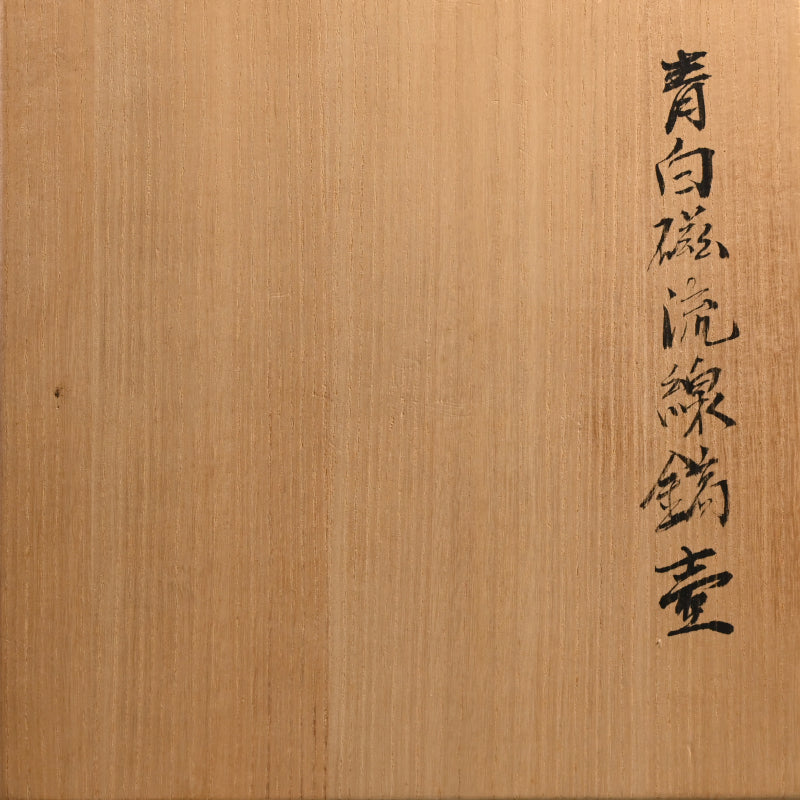 青白磁流線鎬壷